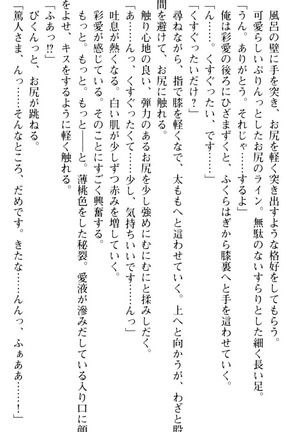 風呂の壁に手を突き、お尻を軽く突き出すような格好をしてもらう。
可愛らしいぷりんっとしたお尻のライン。無駄のないすらりとした細く長い足。
「うん。ありがとう。それじゃ……するよ」
俺は彩愛の後ろにひざまずくと、ふくらはぎから膝裏へと手を這わせていく。
「ん……。くすぐったい、です……」
「くすぐったいだけ?」
尋ねながら、指で膝を軽くなで、太ももへと這わせていく。上へと向かうが、わざと股
間を避けて、お尻に触れる。
触り心地の良い、弾力のあるお尻を少し強めにむにむにと揉みしだく。
「あ、んっ、くすぐったくて……少し、気持ちいいです……んっ」
吐息が熱くなる。白い肌が少しずつ赤みを増していく。
彩愛が感じている。そのことにすごく興奮する。
もっと。もっと。もっと――と、薄桃色をした秘裂。愛液が滲みだしている入り口に顔
をよせ、キスをするように軽く触れる。
「ふあっ!?」
びくんっと、お尻が跳ねる。
「篤人さま、んっ……そんなところ、だめです。きたな……んんっ、ふぁああ……!」